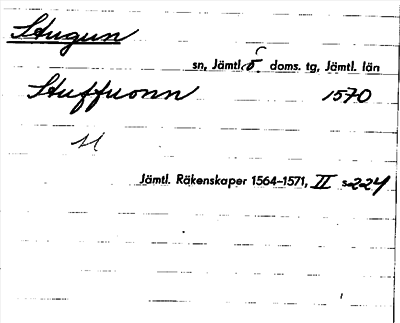 Stugun
sn, Jämtl. ö. doms. tg, Jämtl. län
Stuffuonn 1570
Jämtl. Räkenskaper 1564–1571, II s. 224